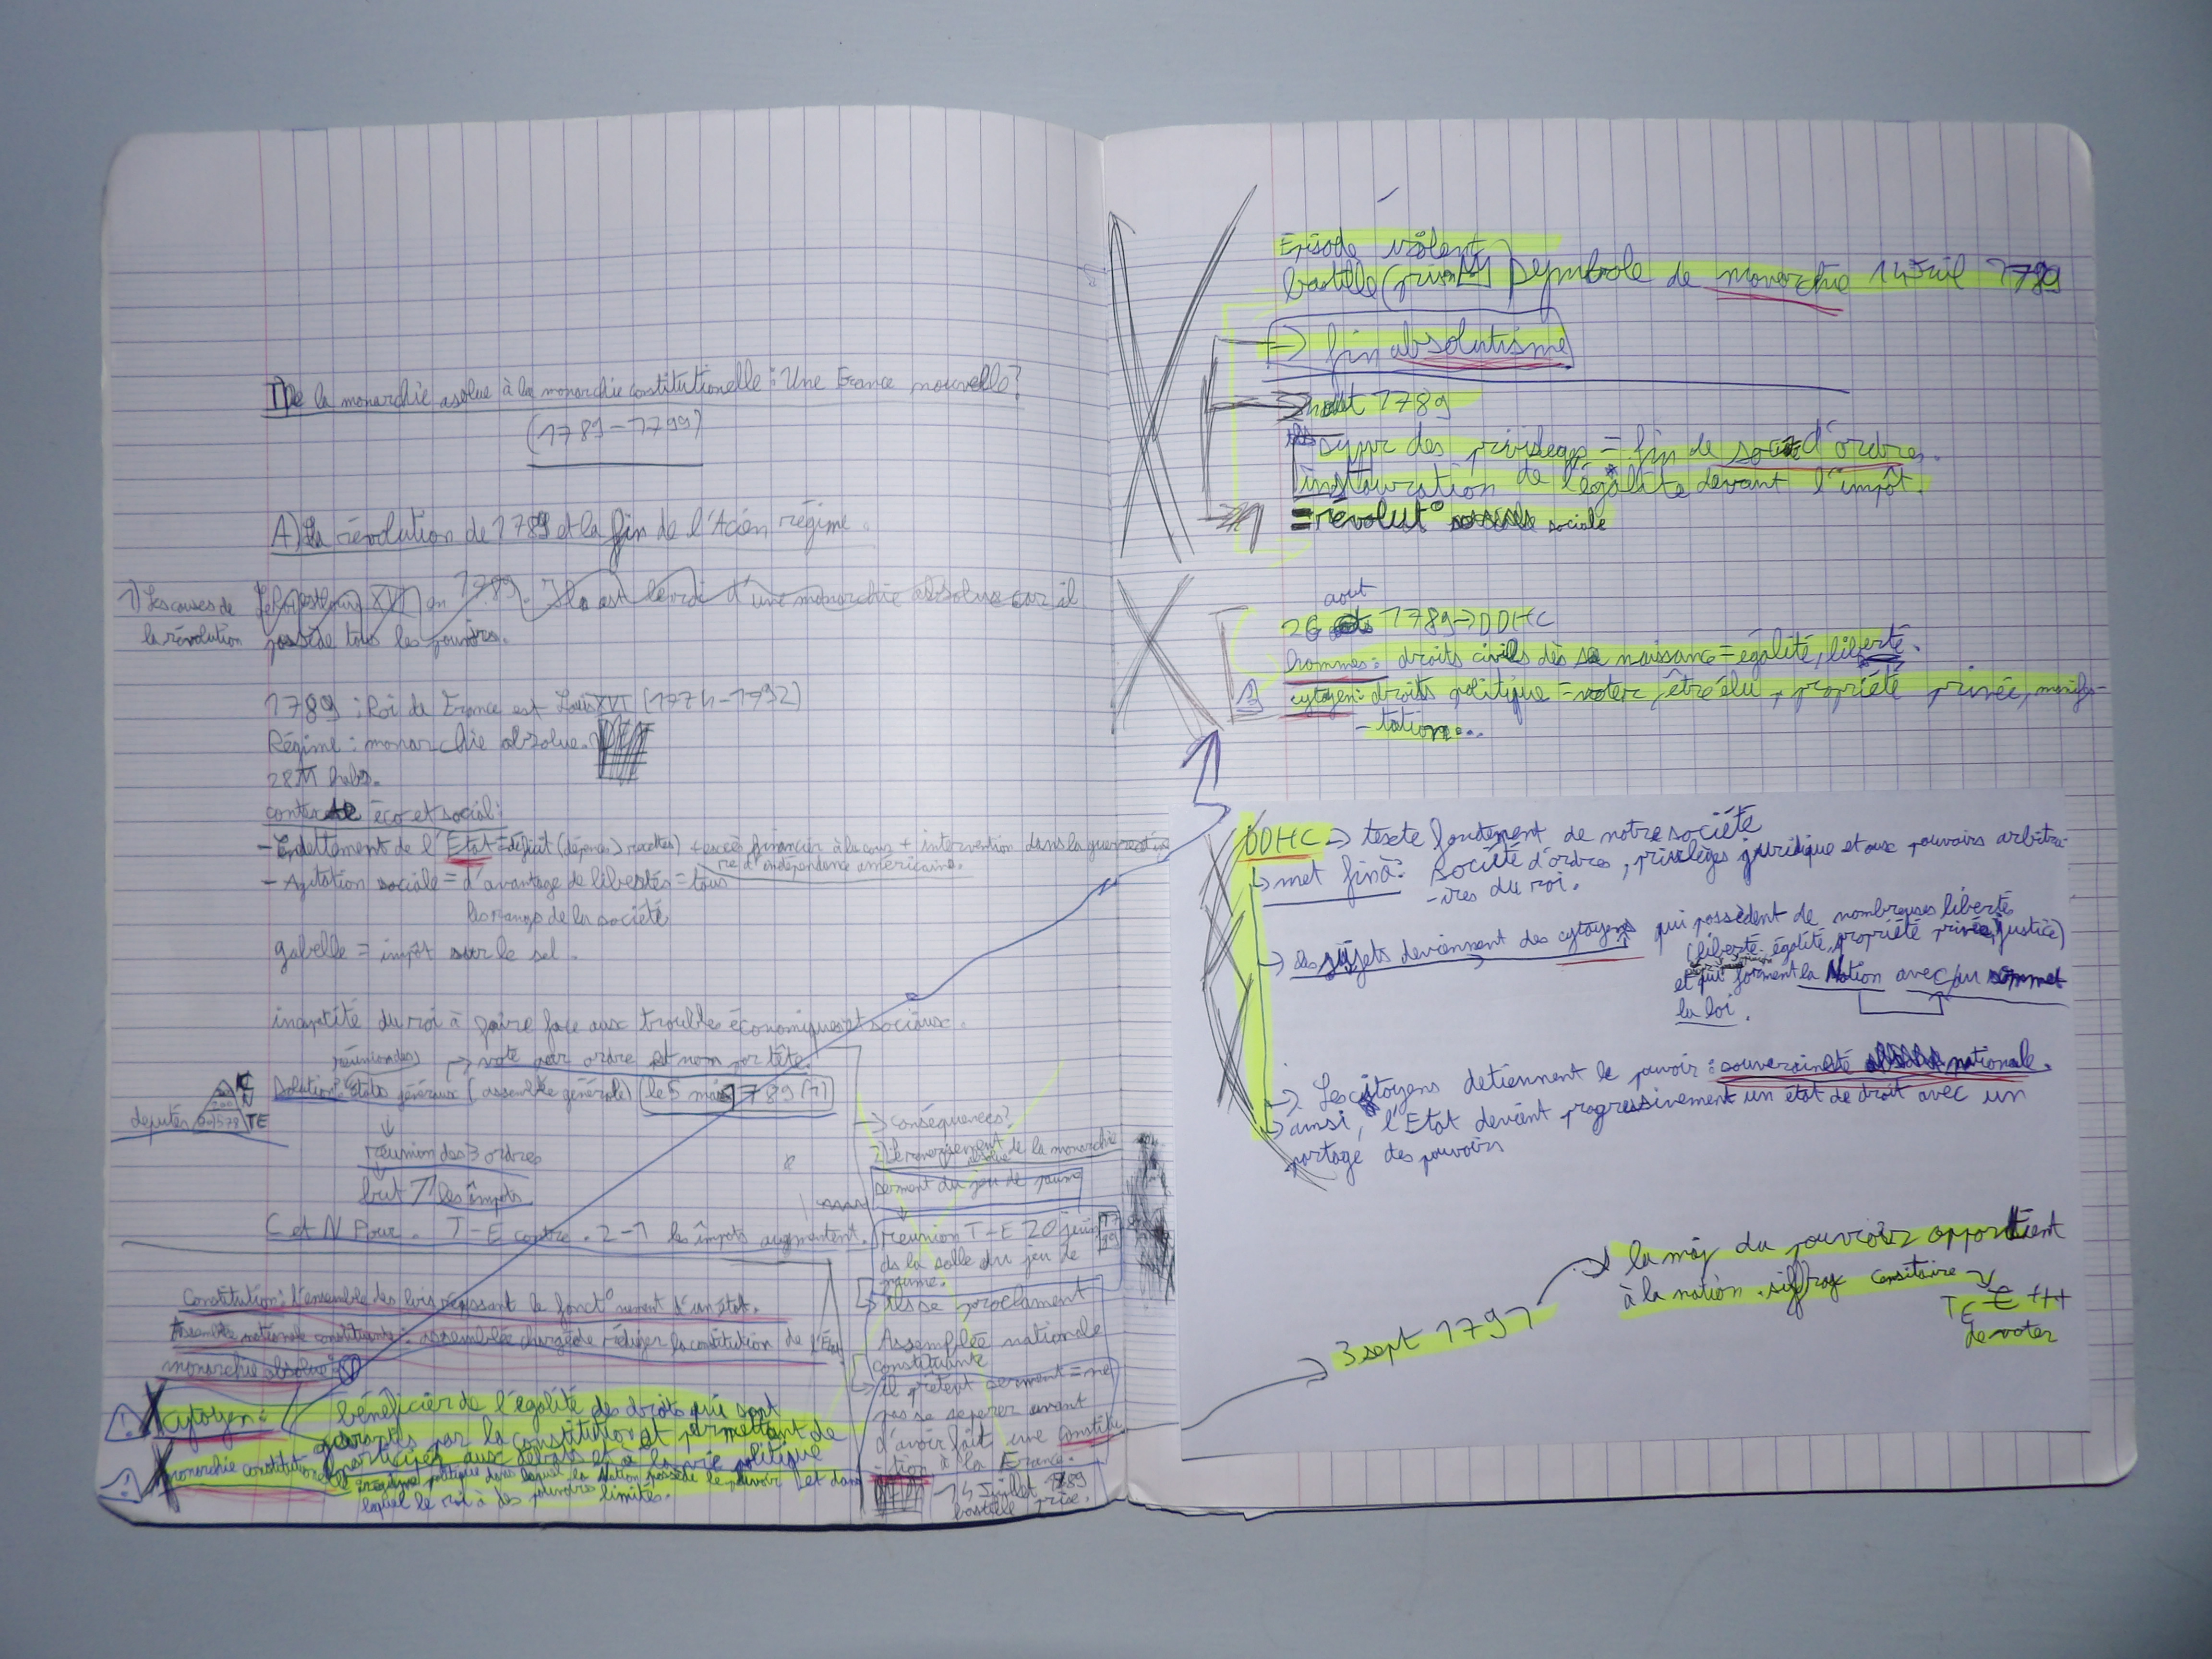 I) De la monarchie asolue à la monarchie constitutionelle : Une France nouvelle?
(1789-1799)
A) La révolution de 1789 et la fin de l'Acien régime.
1) Les causes de
la révolution
en 1789. Il est le roi d'une monarchie absolue car il
possède tous les pouvoirs.
1789 : Roi de France est Louis XVI (1774-1792)
Régime : monarchie absolue.
28M habs.
contexte éco et social :
- Endettement de l'Etat = déficit (dépenses > recettes) + excès financier à la cour + intervention dans la guerre
d'indépendance américaine.
- Agitation sociale = d'avantage de libertés = tous
les rangs de la société
gabelle = impôt sur le sel.
incapatité du roi à faire face aux troubles économiques et sociaux.
réunion des → vote par ordre et nom par tête.
Solution : états généraux (assemblée générale) (le 5 mai 1789 (1)
députés 578 TE
↓
réunion des 3 ordres
↓
but ↗ les impôts
C et N Pour. T-E contre. 2-1 les impôts augmentent.
Constitution : l'ensemble des lois régissant le fonct° nement d'un état.
Assemblée nationale constituante : assemblée chargée de rédiger la constitution de l'État
monarchie absolue :
citoyen : bénéficier de l'égalité des droits qui sont
garantis par la constitution et permettant de
participer aux débats et à la vie politique
monarchie constitutionelle : régime politique dans lequel la Nation possède le pouvoir et dans
lequel le roi à des pouvoirs limités.
→ conséquences?
2) Le renversement de la monarchie
absolue
serment du jeu de paume
↓
réunion T-E 20 juin 1789
ds la salle du jeu de
paume.
→ ils se proclament
Assemplée nationale
constituante
→ il prêtent serment = ne
pas se séparer avant
d'avoir fait une constitu-
-tion à la France.
14 Juillet 1789
bastille prise.
Episode violent
bastille (prison) symbole de monarchie 14 Juil 1789
→ fin absolutisme
août 1789
des privilèges = fin de société d'ordres.
instauration de l'égalité devant l'impôt.
= révolut° sociale
aout
26 1789 → DDHC
hommes : droits civils dès sa naissance = égalité, liberté.
cytoyen : droits politique = voter, être élu, propriété privée, manifes-
-tation...
DDHC → texte fondement de notre société
↳ met fin à : société d'ordres, privilèges juridique et aux pouvoirs arbitra-
-ires du roi.
→ les sujets deviennent des cytoyens qui possèdent de nombreuses libertés
(liberté, égalité, propriété privée, justice)
et qui forment la Nation avec au sommet
la loi.
→ Les citoyens detiennent le pouvoir : souveraineté nationale.
→ ainsi, l'Etat devient progressivement un état de droit avec un
partage des pouvoirs
→ 3 sept 1791 → la maj du pouvoir appartient
à la nation. siffrage censitaire
€ +++
de voter